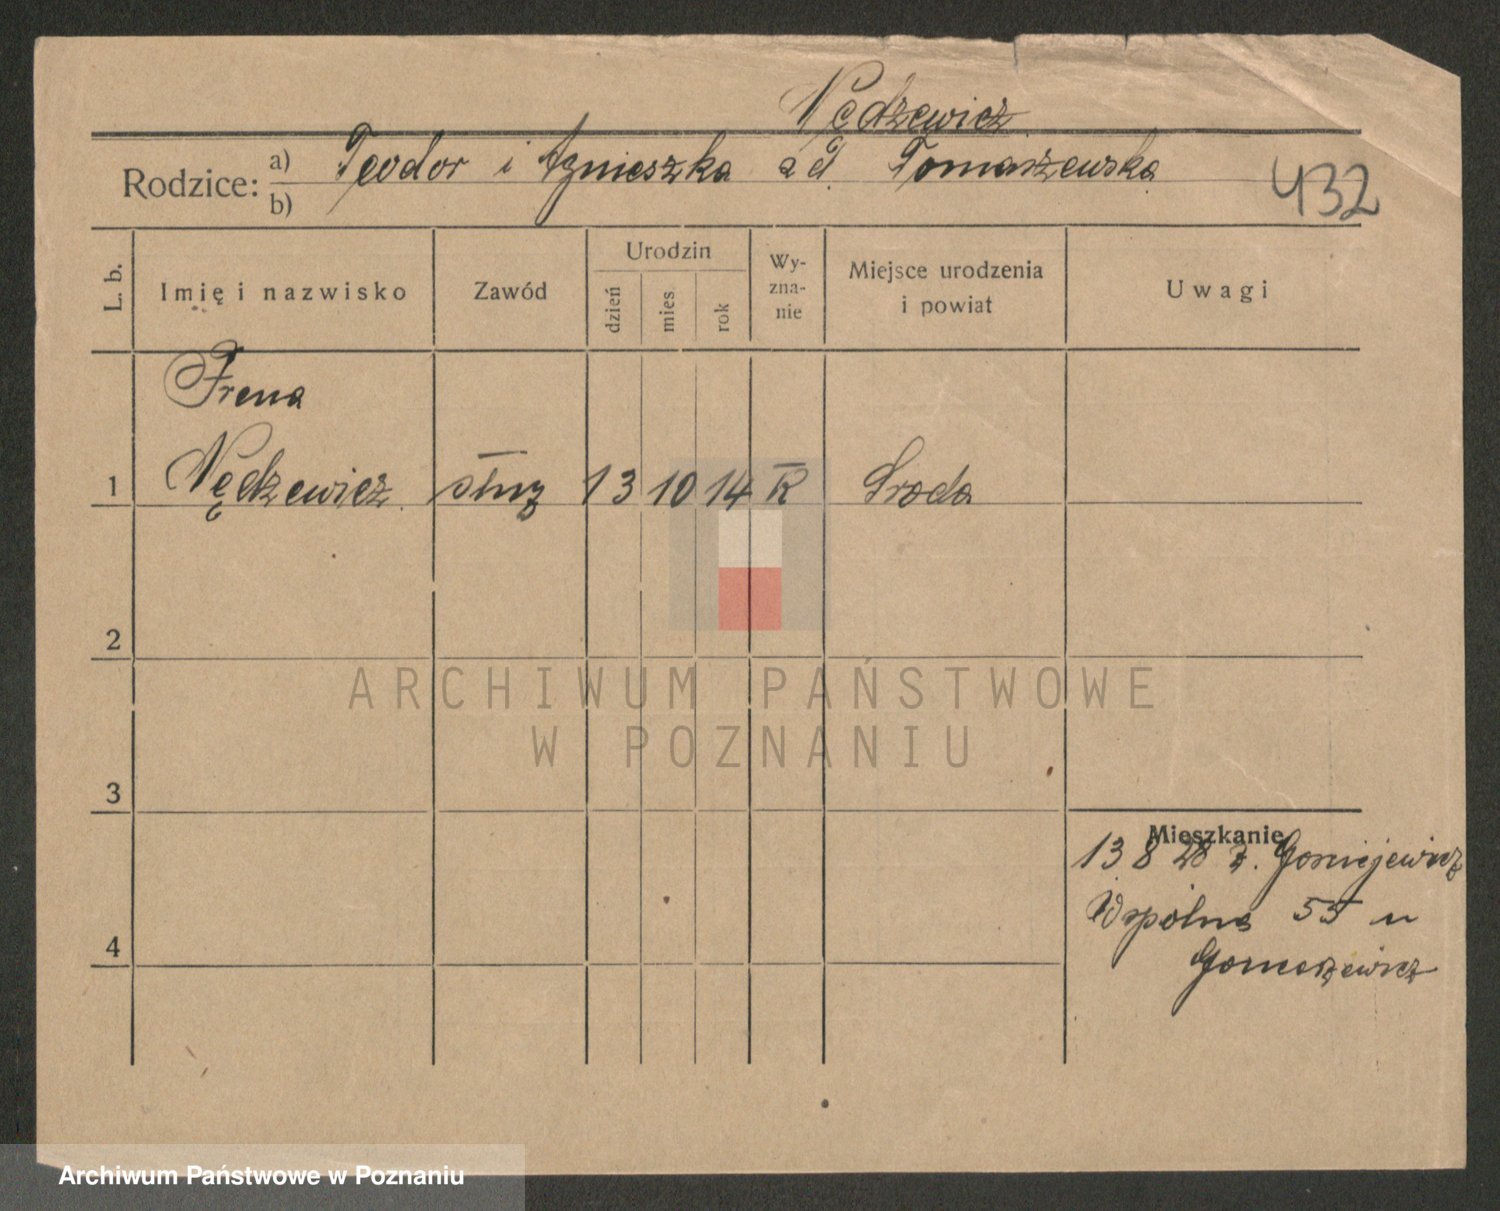 Nędzewicz
Rodzice: a) Teodor i Agnieszka z d. Tomaszewska
b)
432
L. b.
Imię i nazwisko
Zawód
Urodzin
dzień
mies.
rok
Wy-
zna-
nie
Miejsce urodzenia
i powiat
Uwagi
Irena
1 Nędzewicz służ 13 10 14 R Środa
2
3
4
Mieszkanie
13 8 28 z.
Wspólna 55 u
ARCHIWUM PAŃSTWOWE
W POZNANIU
Archiwum Państwowe w Poznaniu